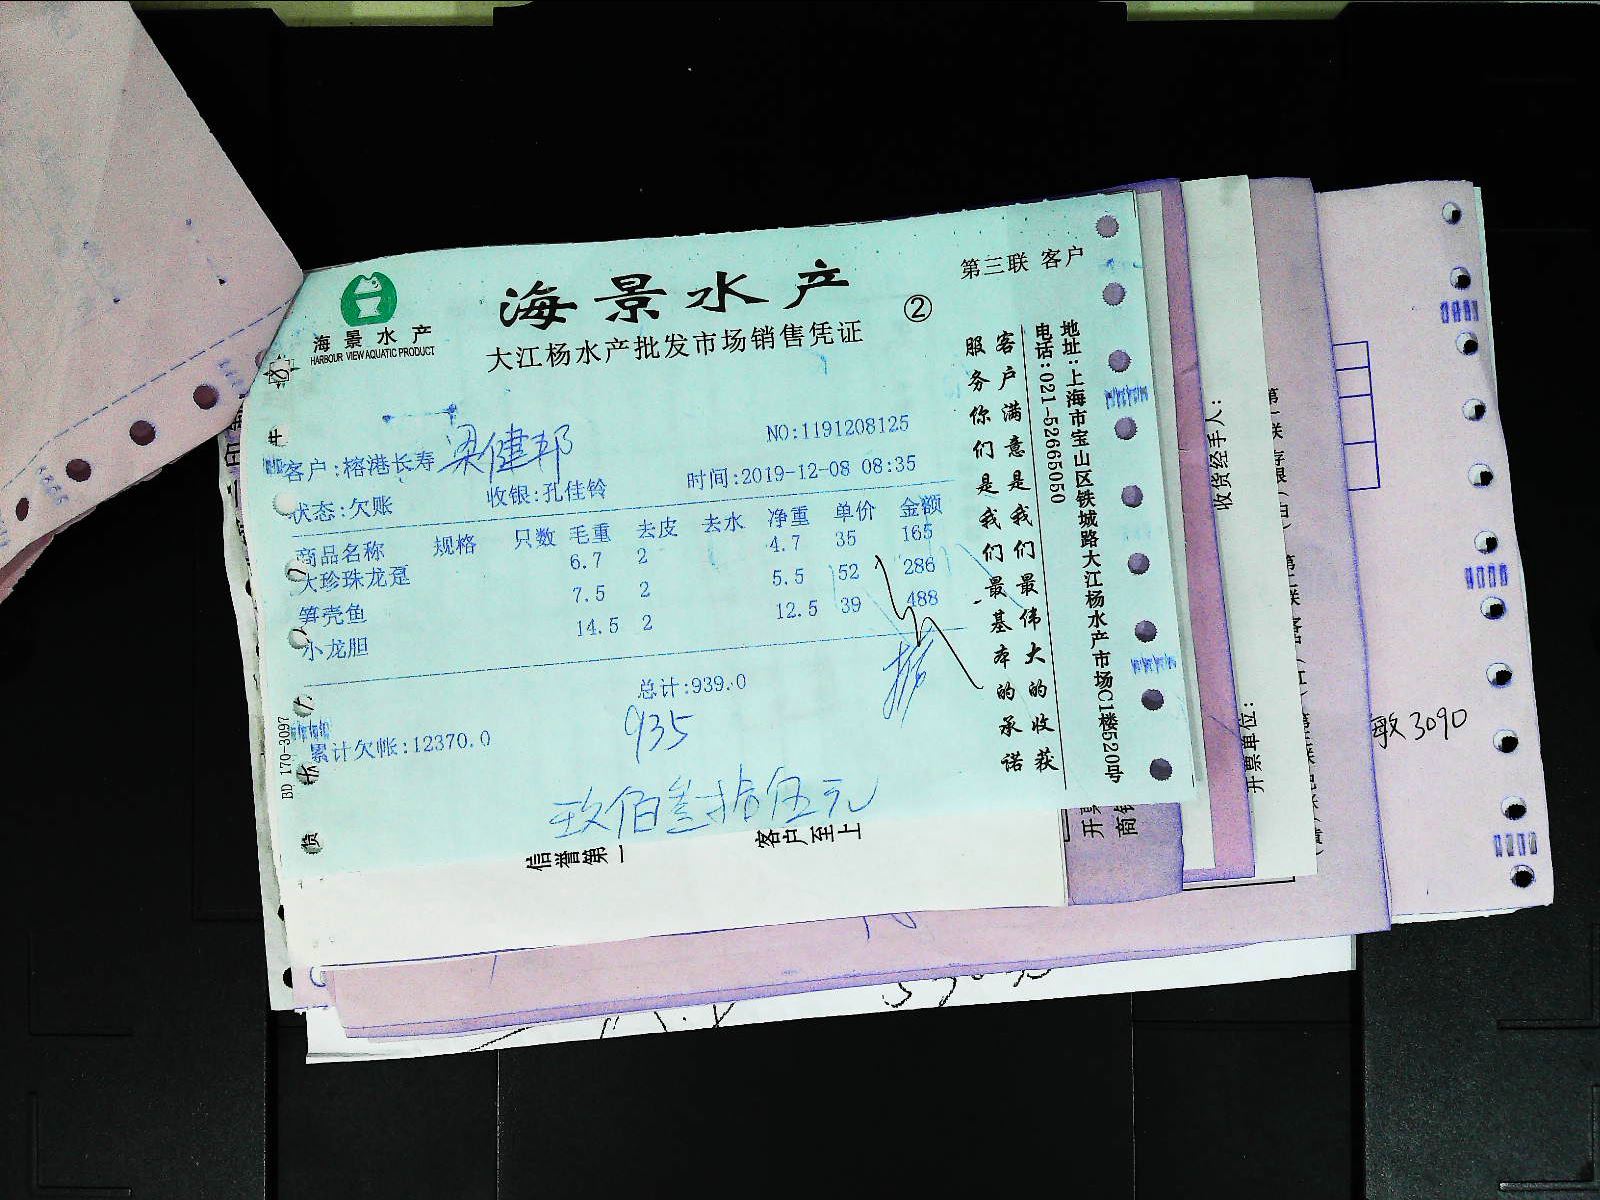 海景水产
HARBOUR VIEW AQUATIC PRODUCT
海景水产
大江杨水产批发市场销售凭证
②
第三联 客户
NO:1191208125
客户:榕港长寿 梁健邦
时间:2019-12-08 08:35
状态:欠账 收银:孔佳铃
商品名称 规格 只数 毛重 去皮 去水 净重 单价 金额
大珍珠龙趸 6.7 2 4.7 35 165
笋壳鱼 7.5 2 5.5 52 286
小龙胆 14.5 2 12.5 39 488
总计:939.0
935
累计欠帐:12370.0
玖佰叁拾伍元
客户满意是我们最伟大的收获
服务你们是我们最基本的承诺
地址:上海市宝山区铁城路大江杨水产市场C1楼520号
电话:021-52665050
BD 170-3097
信誉第一
客户至上
收货经手人:
开票单位:
敏3090